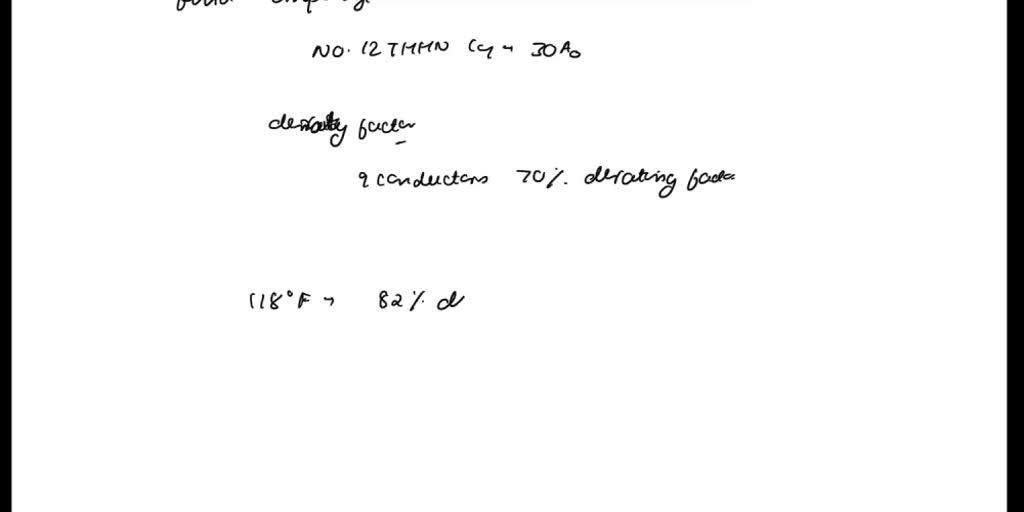 NO. 12 THHN Cu → 30A
factor
9 conductors 70%. derating facto
118°F → 82%. d